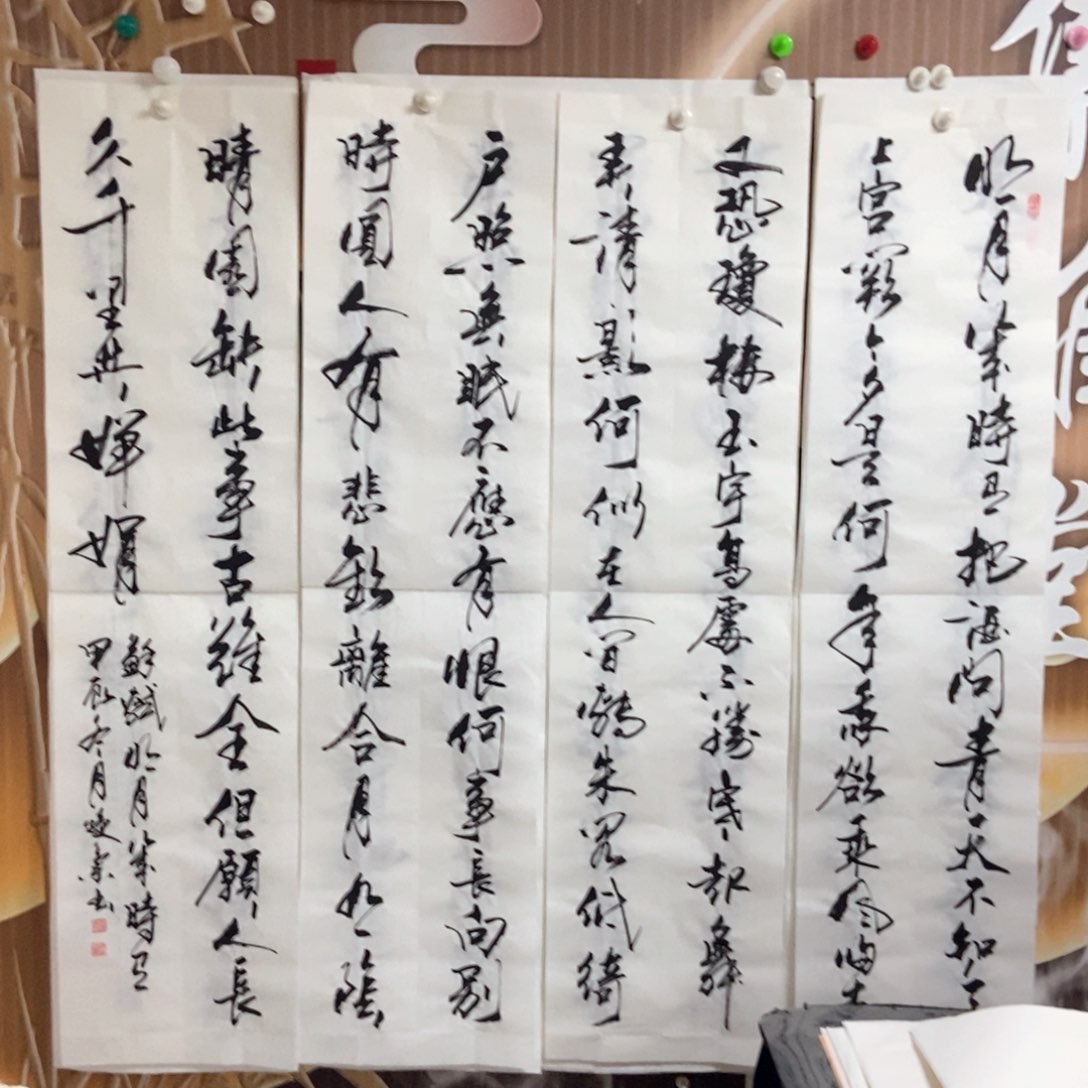 明月幾時有把酒問青天不知天
上宮闕今夕是何年我欲乘風歸去
又恐瓊樓玉宇高處不勝寒起舞
弄清影何似在人間轉朱閣低綺
戶照無眠不應有恨何事長向別
時圓人有悲歡離合月有陰
晴圓缺此事古難全但願人長
久千里共嬋娟
蘇軾明月幾時有
甲辰冬月书